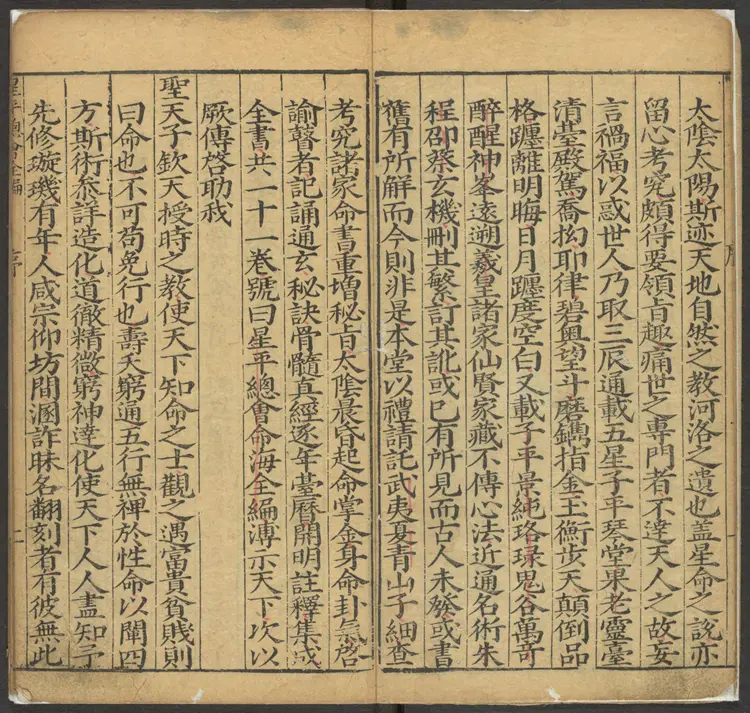 太陰太陽斯迹天地自然之教河洛之遺也盖星命之説亦
留心考究頗得要領旨趣痛世之專門者不達天人之故妄
言禍福以惑世人乃取三辰通載五星子平琴堂果老靈臺
清臺殿駕喬拗耶律碧奥望斗磨鐫指金玉衡步天顛倒品
格躔離明晦日月躔度空白又載子平景純珞琭鬼谷萬竒
醉醒神峯遠遡羲皇諸家仙賢家藏不傳心法近通名術朱
程邵蔡玄機刪其繁訂其訛或已有所見而古人未發或書
舊有所解而今則非是本堂以禮請託武夷夏青山子細查
考究諸家命書重増秘旨太陰晨昏起命掌金身命卦氣啓
諭瞽者記誦通玄秘訣骨髓真經逐年臺曆開明註釋集成
全書共一十一卷號曰星平總會命海全編溥示天下次以
厥傳啓助我
聖天子欽天授時之教使天下知命之士觀之遇富貴貧賤則
曰命也不可苟免行也壽夭窮通五行無禆於性命以闡四
方斯術叅詳造化道徹精微窮神達化使天下人人盡知予
先修璇璣有年人咸宗仰坊間溷詐昧名翻刻者有彼無此
序